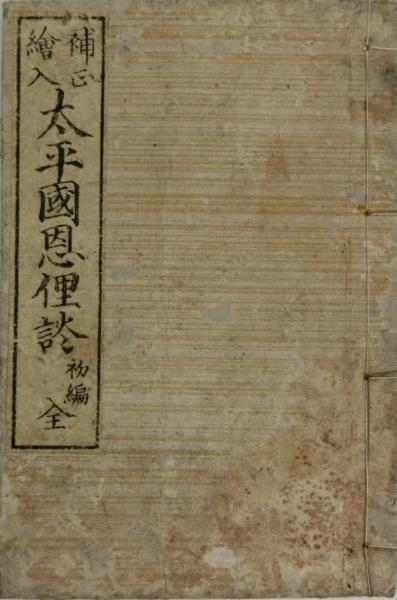 補正
繪入
太平國恩俚談
初編
全